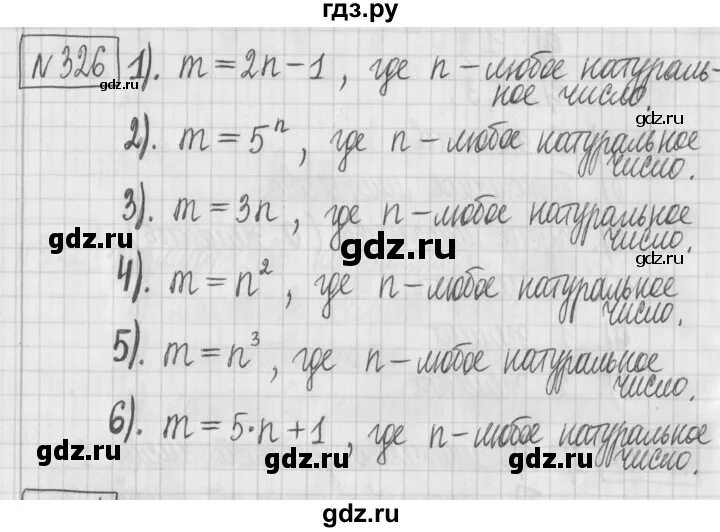 гдз.ру
№326 1). m = 2n - 1, где n - любое натураль-
ное число.
2). m = 5ⁿ, где n - любое натуральное
число.
3). m = 3n, где n - любое натуральное
число.
gdz.ru gdz.ru gdz.ru
4). m = n², где n - любое натуральное
число.
5). m = n³, где n - любое натуральное
число.
6). m = 5·n + 1, где n - любое натуральное
число.
gdz.ru gdz.ru
gdz.ru